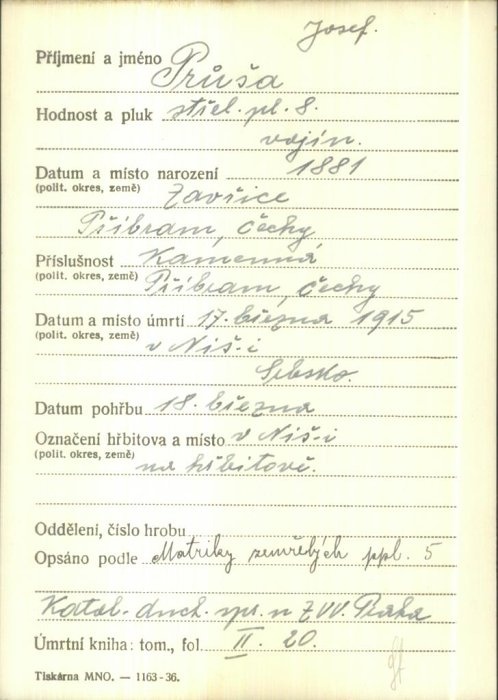 Josef.
Příjmení a jméno Průša
Hodnost a pluk střel. pl. 8.
vojín.
Datum a místo narození 1881
(polit. okres, země) Zavřice
Příbram, Čechy
Příslušnost Kamenná
(polit. okres, země) Příbram, Čechy
Datum a místo úmrtí 17. března 1915
(polit. okres, země) v Niš-i
Srbsko.
Datum pohřbu 18. března
Označení hřbitova a místo v Niš-i
(polit. okres, země) na hřbitově.
Oddělení, číslo hrobu
Opsáno podle Matriky zemřelých ppl. 5
Katol. duch. spr. u ZVV. Praha
Úmrtní kniha: tom., fol. II. 20.
Tiskárna MNO. — 1163-36.